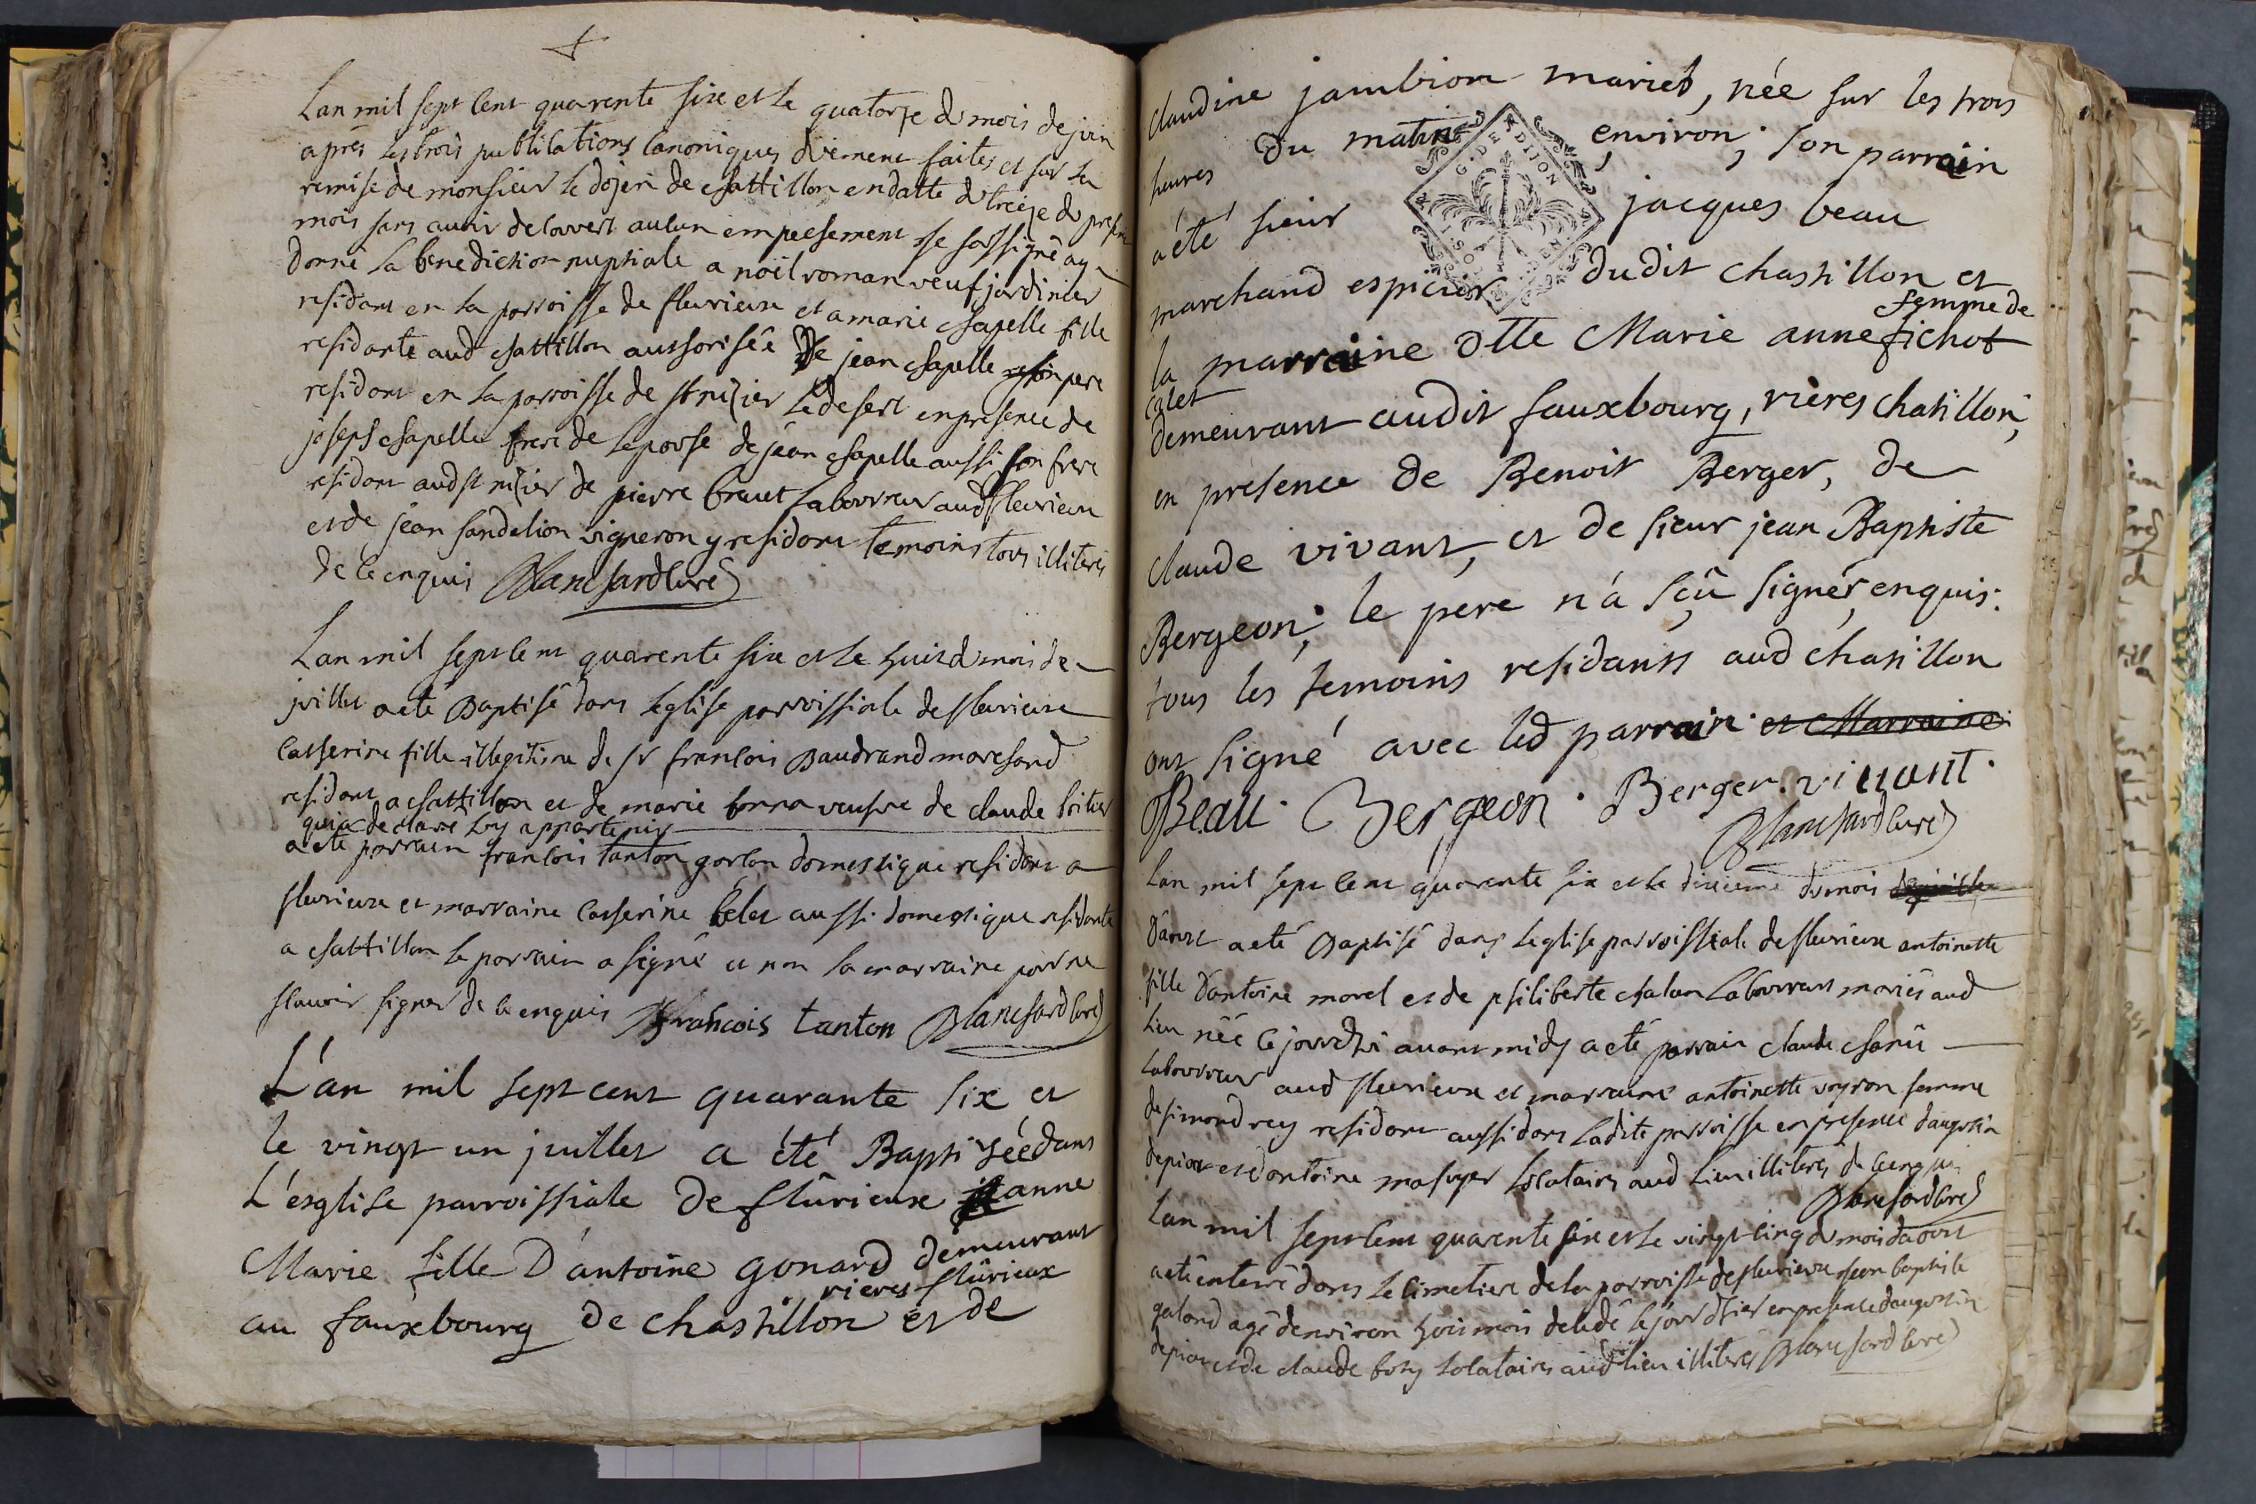 Lan mil sept cent quarente six et le quatorze du mois de juin
après les trois publications canoniques düement faites et sur la
remise de monsieur le dojen de chattillon en datte du treize du present
mois sans avoir decouvert aucun empechement je soussigné ay
donné la benediction nuptiale a noël roman veuf jardinier
residant en la parroisse de fleurieux et a marie chapelle fille
residante aud chattillon authorisée de jean chapelle son pere
residant en la parroisse de st nizier le desert en presence de
joseph chapelle frere de lepouse de jean chapelle aussi son frere
residant aud st nizier de pierre braut laboureur aud fleurieux
et de jean sandelion vigneron y residant temoins tous illiterés
de ce enquis Blanchard curé
Lan mil sept cent quarente six et le huit du mois de
juillet a eté Baptisé dans leglise parroissiale de fleurieux
catherine fille illegitime de sr francois Baudrand marchand
residant a chattillon et de marie veufve de claude
qui a declaré luy appartenir
a eté parrain francois tanton garcon domestique residant a
fleurieux et marraine catherine aussi domestique residante
a chattillon le parrain a signé et non la marraine pour ne
scavoir signer de ce enquis francois tanton Blanchard curé
L'an mil sept cent quarante six et
le vingt un juillet a été Baptiséé dans
L'esglise parroissiale de flûrieux anne
Marie fille D'antoine gonard demeurant
rieres flûrieux
au fauxbourg de chastillon et de
claudine jambion mariés, née sur les trois
heures du matin environ; son parrain
a été sieur jacques beau
marchand espicier dudit chastillon et
femme de
la marraine dlle Marie anne fichot
calet
demeurant audit fauxbourg, rières chatillon,
en présence de Benoit Berger, de
claude vivant, et de sieur jean Baptiste
Bergeon; le pere n'a sçû signér, enquis.
tous les temoins residants aud chatillon
ont signé avec led parrain et Marraine
Beau. Bergeon. Berger. viuant.
Blanchard curé
G. DE DIJON
Lan mil sept cent quarente six et le dixieme du mois
d'aoust a eté Baptisé dans leglise parroissiale de fleurieux antoinette
fille d'antoine morel et de philiberte chalan laboureurs mariés aud
lieu néé cejourdhui avant midy a eté parrain claude chanû
laboureur aud fleurieux et marraine antoinette voyron femme
de simond rey residant aussi dans ladite parroisse en presence daugustin
depiat et dantoine masuyer locataires aud lieu illiterés de ce enquis
Blanchard curé
Lan mil sept cent quarente six et le vingt cinq du mois daoust
a eté enterré dans le cimetiere de la parroisse de fleurieux jean baptiste
galand agé denviron huit mois decedé le jour dhier en presence daugustin
depiat et de claude bory locataires aud lieu illiterés Blanchard curé